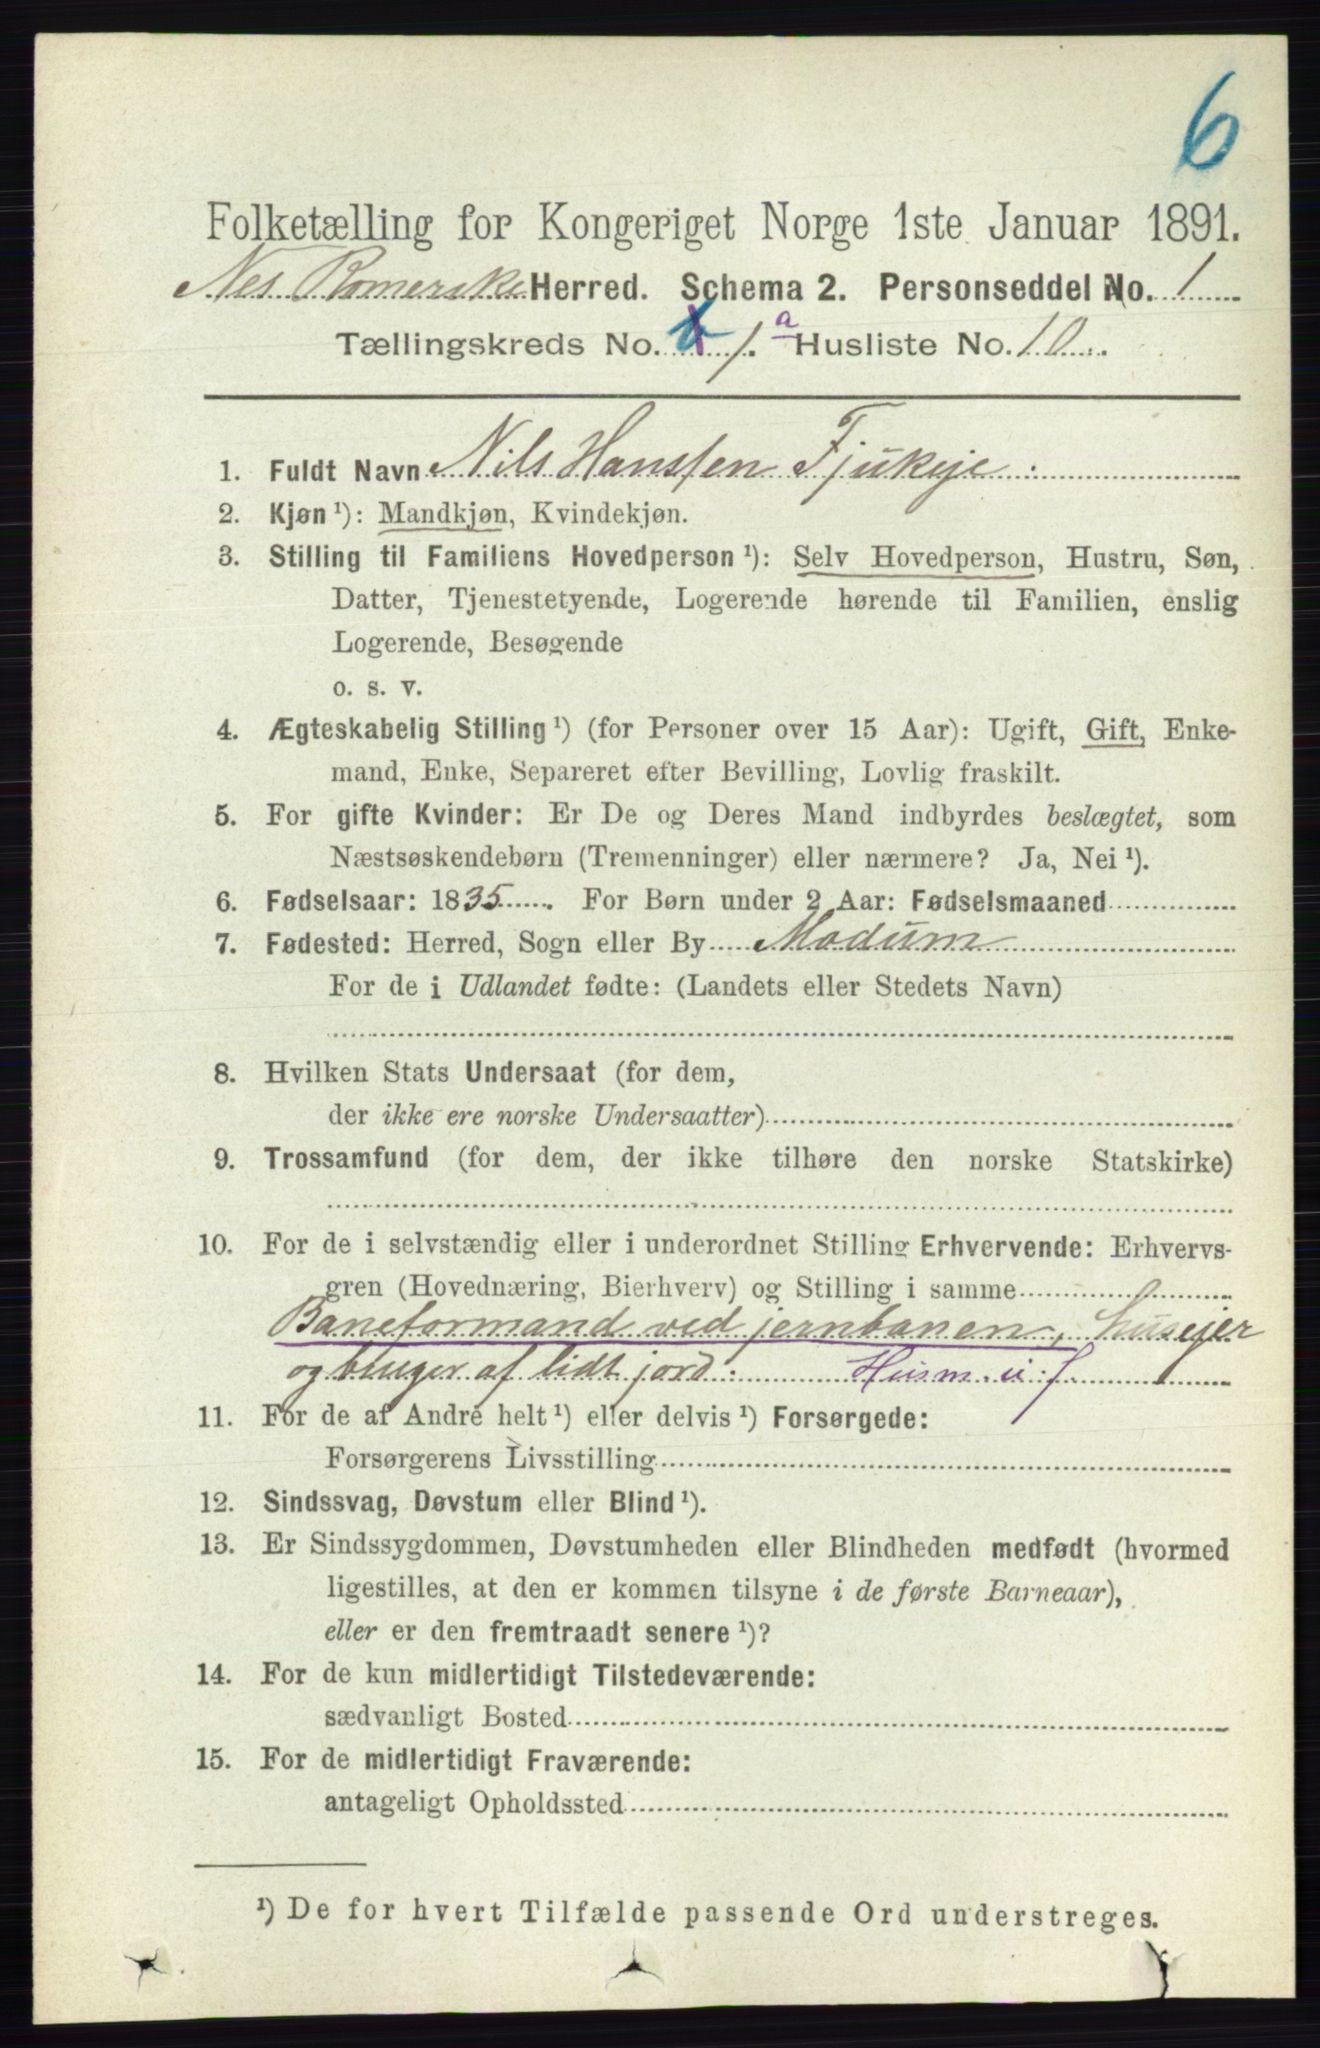 6
Folketælling for Kongeriget Norge 1ste Januar 1891.
Nes Romerike Herred. Schema 2. Personseddel No. 1
Tællingskreds No. 1. a Husliste No. 10
1. Fuldt Navn Nils Hanssen Tjukeje
2. Kjøn ¹): Mandkjøn, Kvindekjøn.
3. Stilling til Familiens Hovedperson ¹): Selv Hovedperson, Hustru, Søn,
Datter, Tjenestetyende, Logerende hørende til Familien, enslig
Logerende, Besøgende
o. s. v.
4. Ægteskabelig Stilling ¹) (for Personer over 15 Aar): Ugift, Gift, Enke-
mand, Enke, Separeret efter Bevilling, Lovlig fraskilt.
5. For gifte Kvinder: Er De og Deres Mand indbyrdes beslægtet, som
Næstsøskendebørn (Tremenninger) eller nærmere? Ja, Nei ¹).
6. Fødselsaar: 1835. For Børn under 2 Aar: Fødselsmaaned
7. Fødested: Herred, Sogn eller By Modum
For de i Udlandet fødte: (Landets eller Stedets Navn)
8. Hvilken Stats Undersaat (for dem,
der ikke ere norske Undersaatter)
9. Trossamfund (for dem, der ikke tilhøre den norske Statskirke)
10. For de i selvstændig eller i underordnet Stilling Erhvervende: Erhvervs-
gren (Hovednæring, Bierhverv) og Stilling i samme
Baneformand ved jernbanen, husejer
og bruger af lidt jord. Husm. u. j.
11. For de af Andre helt ¹) eller delvis ¹) Forsørgede:
Forsørgerens Livsstilling
12. Sindssvag, Døvstum eller Blind ¹).
13. Er Sindssygdommen, Døvstumheden eller Blindheden medfødt (hvormed
ligestilles, at den er kommen tilsyne i de første Barneaar),
eller er den fremtraadt senere ¹)?
14. For de kun midlertidigt Tilstedeværende:
sædvanligt Bosted
15. For de midlertidigt Fraværende:
antageligt Opholdssted
¹) De for hvert Tilfælde passende Ord understreges.